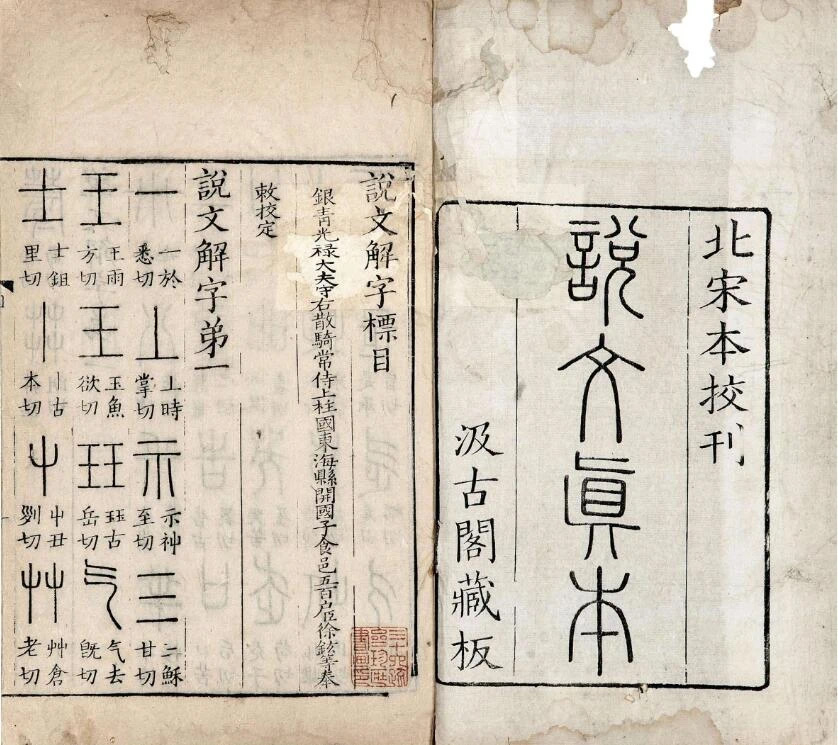 北宋本挍刊
說文眞本
汲古閣藏板
說文解字標目
銀青光祿大夫守右散騎常侍上柱國東海縣開國子食邑五百戶臣徐鉉等奉
敕挍定
說文解字弟一
一 一於悉切 丄 上時掌切 示 示神至切 三 三穌甘切
王 王雨方切 王 玉魚欲切 玨 珏古岳切 气 气去旣切
士 士鉏里切 丨 丨古本切 屮 屮丑列切 艸 艸倉老切